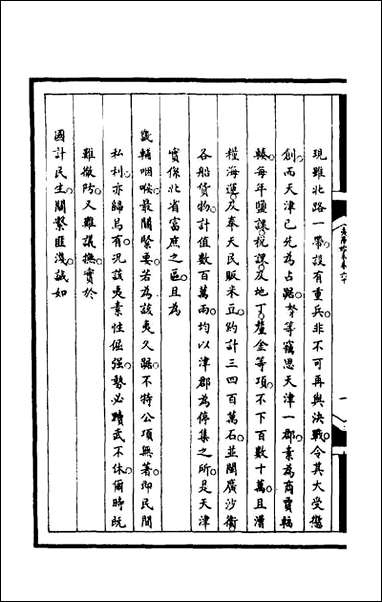 現雖北路一帶設有重兵非不可再與決戰令其大受懲
創而天津已先為占踞奴才等竊思天津一郡素為商賈輻
輳每年鹽課稅課及地丁釐金等項不下百數十萬且漕
糧海運及奉天民販米豆約計三四百萬石並閩廣沙衛
各船貨物計值數百萬兩均以津郡為停集之所是天津
實係北省富庶之區且為
畿輔咽喉最關緊要若為該夷久踞不特公項無著即民間
私利亦歸烏有況該夷素性倔强勢必黷武不休爾時既
難撤防又難議撫實於
國計民生關繫匪淺誠如